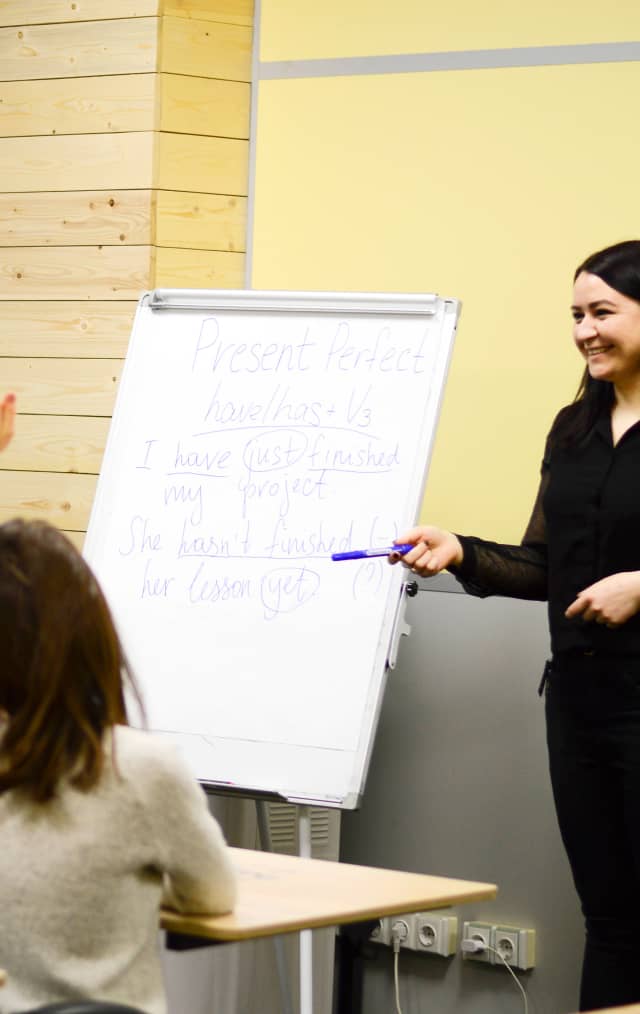 Present Perfect
have/has + V3
I have just finished
my project.
She hasn't finished (-)
her lesson yet. (?)